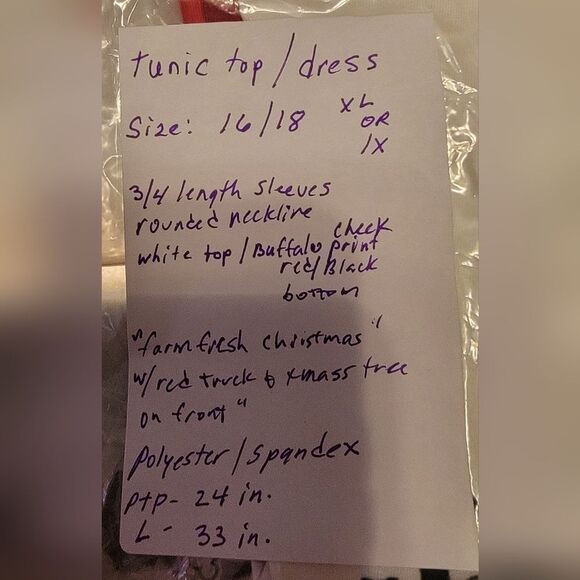 tunic top / dress
Size: 16/18 XL
OR
1X
3/4 length sleeves
rounded neckline
check
white top / Buffalo print
red/Black
bottom
"farm fresh christmas"
w/red truck & xmass tree
on front"
polyester / spandex
ptp- 24 in.
L- 33 in.